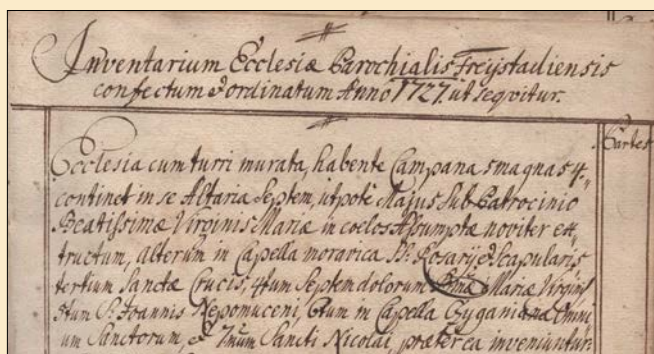 Inventarium Ecclesiæ Parochialis Freystadiensis
confectum & ordinatum Anno 1727. ut seqvitur.
Partes
Ecclesia cum turri murata, habente Campanas magnas 4.
continet in se Altaria Septem, utpote Majus Sub Patrocinio
Beatissimæ Virginis Mariæ in coelos Assumptæ noviter ex,,
tructum, alterum in Capella moravica SS. Rosarij & Scapularis
tertium Sanctæ Crucis, 4tum Septem dolorum Mariæ Virginis
5tum S. Joannis Nepomuceni, 6tum in Capella Gygani Omni
um Sanctorum, & 7mum Sancti Nicolai, præterea inveniuntur